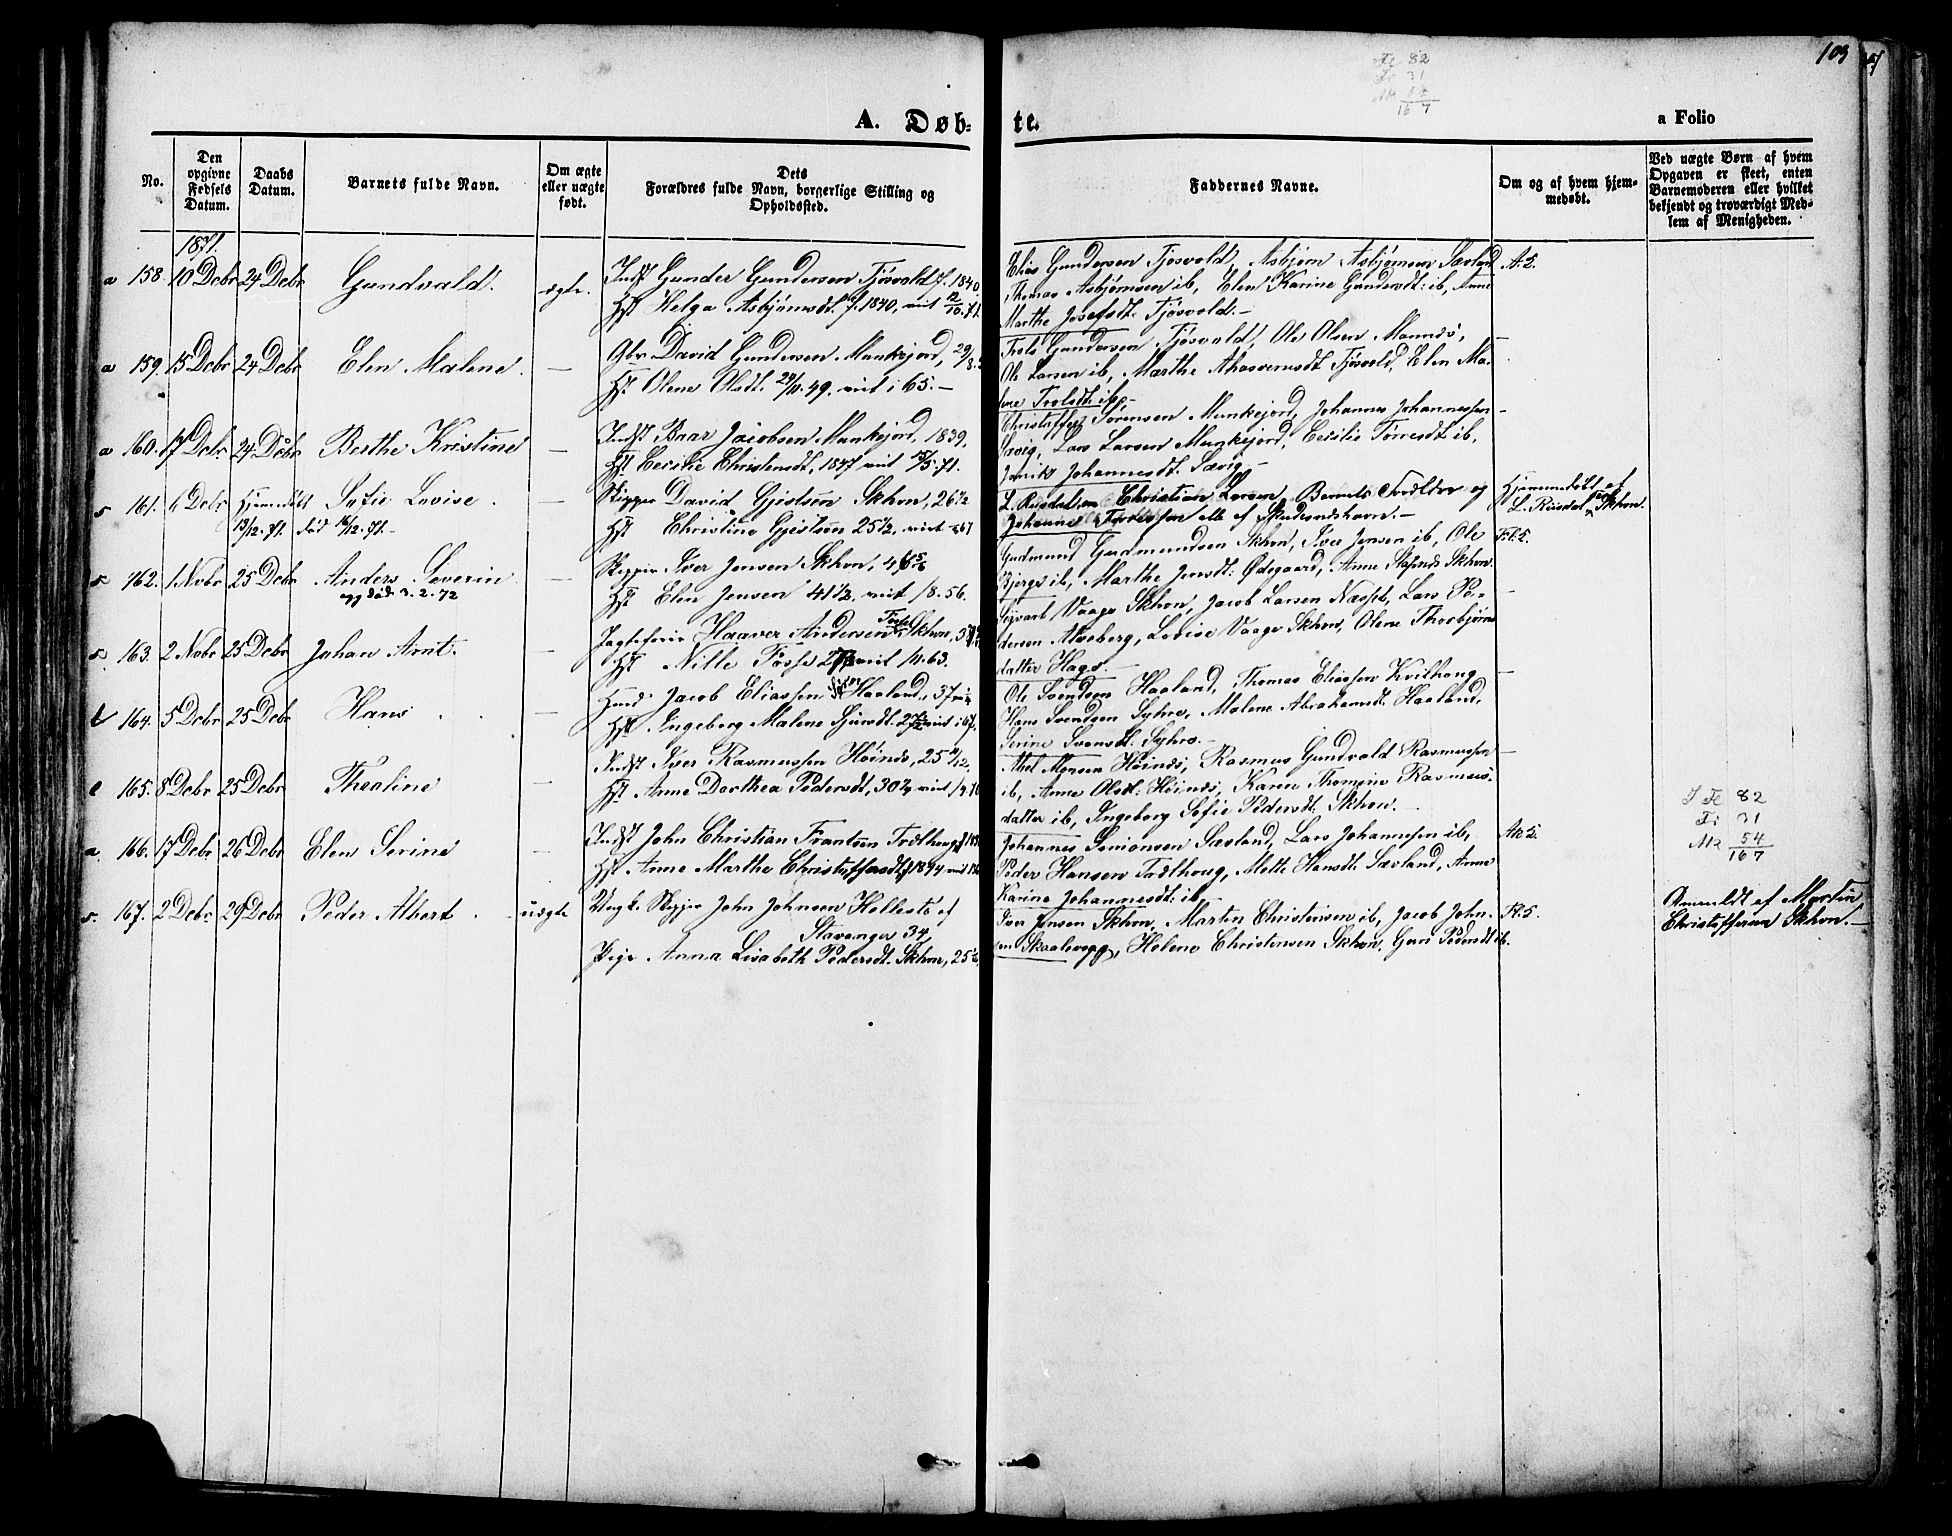 103
Fe 82
Fi 31
Mk 54
167
A. Døb-
te.
a Folio
No.
Den opgivne Fødsels Datum.
Daabs Datum.
Barnets fulde Navn.
Om ægte eller uægte født.
Dets Forældres fulde Navn, borgerlige Stilling og Opholdssted.
Faddernes Navne.
Om og af hvem hjemmedøbt.
Ved uægte Børn af hvem Opgaven er skeet, enten Barnemoderen eller hvilket bekjendt og troværdigt Medlem af Menigheden.
1871.
a 158. 10 Debr 24 Debr Gundvald. ægte. Indst Gunder Gundersen Tjøsvold f. 1840.
Hst Helga Asbjørnsdt. f. 1840, viet 12/10.71.
Elias Gundersen Tjøsvold, Asbjørn Asbjørnsen Sævland A.5.
Thomas Asbjørnsen ib, Elen Karine Gundersdt: ib, Anne
Marthe Josefsdt. Tjøsvold.-
a 159. 15 Debr 24 Debr Elen Malene. — Gbr David Gundersen Munkejord, 29/8.
Hst Olene Olsdt. 24/11.49. viet i 65.-
Trols Gundersen Tjøsvold, Ole Olsen Mannes,
Ole Larsen ib, Marthe Ahasverusdt Tjøsvold, Elen Ma-
lene Trolsdt: ib.-
a 160. 17 Debr. 24 Debr Berthe Kristine — Indst Baar Jacobsen Munkejord, 1839.
Hst Cecilie Christensdt, 1847 viet 15/5.71.
Christoffer Sørensen Munkejord, Johannes Johannessen
Sævig, Lars Larsen Munkejord, Cecilie Torresdt ib,
Johannesdt. Sævig.-
s 161. 6 Debr Hjemmedøbt Sofie Lovise. — Skipper David Gjertsen Skhvn, 26 1/2
13/12.71. død 16/12.71.- Hst Christine Gjertsen 25 1/2, viet 67
Christian Larsen, Barnets Forældre og
Johannes alle af Skudesneshavn.-
Hjemmedøbt af
L. Risdal Skhvn.
s 162. 1 Nobr 25 Debr Anders Severin. — Skipper Iver Jensen Skhvn, 46 5/6
død 3.2.72 Hst Elen Jensen 41 1/2, viet 18.56.
Gudmund Gudmundsen Skhvn, Iver Jensen ib, Ole Fl.5.
ib, Marthe Jensdt: Ødegaard, Anne Skhvn.
s. 163. 2 Nobr 25 Debr Johan Arnt. — Jagtefører Haaver Andersen Skhvn,
Hst Nille Fosse viet 11.63.
Vaage Skhvn, Jacob Larsen Næsset, Lars Pe-
dersen Alvaberg, Lovise Vaage Skhvn, Olene Thorbjørns
datter Hage.-
t 164. 5 Debr 25 Debr Hans — Jacob Eliassen Haaland, 37
Hst Ingeborg Malene Sjursdt. viet i 67.
Ole Svendsen Haaland, Thomas Eliassen Kvilhoug
Hans Svendsen Syhre, Malene Abrahamsdt Haaland,
Serine Svensdt. Syhre.-
t 165. 8 Debr 25 Debr Thealine — Indst Iver Rasmussen Høines, 25
Hst Anne Dorthea Pedersdt, 30 viet
Monsen Høines, Rasmus Gundvald Rasmussen
ib, Anne Olsdt. Høines, Karen Thomine Rasmus-
datter ib, Ingeborg Sofie Pedersdt: Skhvn.
a. 166. 17 Debr 26 Debr Elen Serine — Indst John Christian Frantsen Trælhoug
Hst Anne Marthe Christoffersdt, 1844 viet
Johannes Simonsen Sævland, Lars Johannesen ib, A.5.
Peder Hansen Trælhoug, Mette Hansdt. Sævland, Anne
Karine Johannesdt: ib
I Fe 82
Fi 31
Mk 54
167
s. 167. 2 Debr. 29 Debr Peder Albert. uægte Ungk. Skipper John Johnsen Hellestø af
Stavanger 34,
Pige Anna Lisabeth Pedersdt. Skhvn, 25
Iver Jensen Skhvn, Martin Christensen ib, Jacob John- Fl.5.
sen Skaalevegg, Helene Christensen Skhvn, Guri Pedersdt ib.
Anmeldt af Martin
Christoffersen Skhvn.-